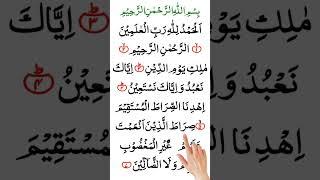 بِسْمِ اللهِ الرَّحْمٰنِ الرَّحِيْمِ
اَلْحَمْدُ لِلّٰهِ رَبِّ الْعٰلَمِيْنَ
الرَّحْمٰنِ الرَّحِيْمِ
مٰلِكِ يَوْمِ الدِّيْنِ ٣ اِيَّاكَ
نَعْبُدُ وَاِيَّاكَ نَسْتَعِيْنُ ٤
اِهْدِنَا الصِّرَاطَ الْمُسْتَقِيْمَ
صِرَاطَ الَّذِيْنَ اَنْعَمْتَ
غَيْرِ الْمَغْضُوْبِ
وَلَا الضَّآلِّيْنَ